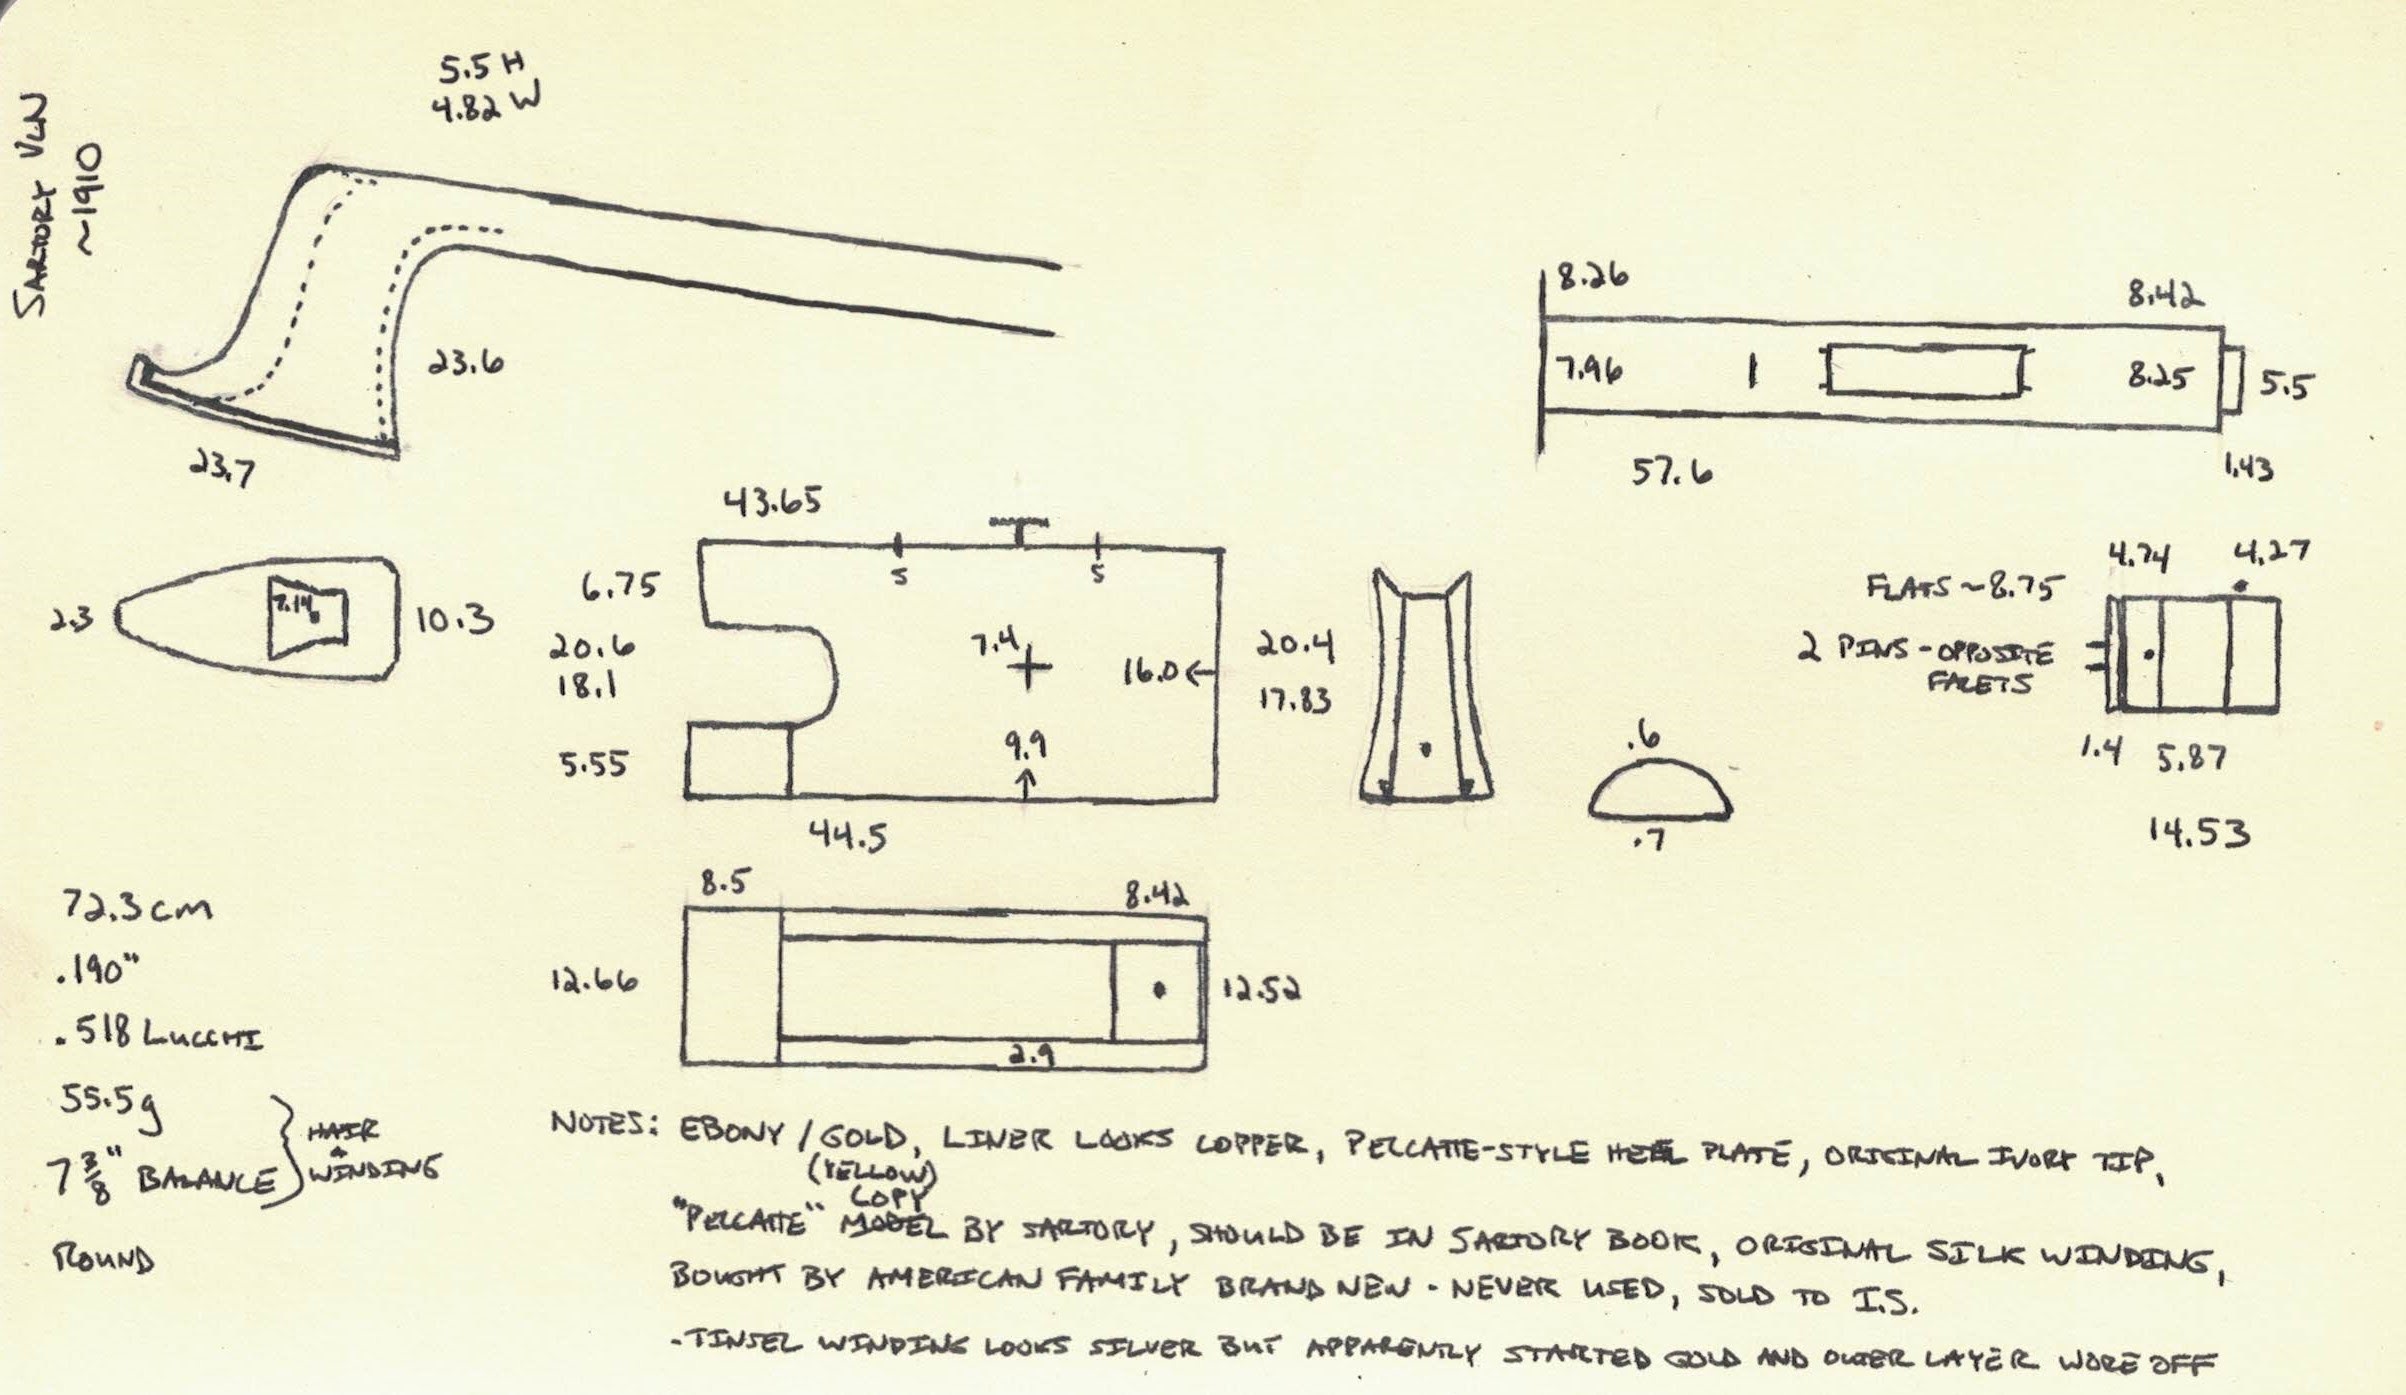 SARTORY VLN
~1910
5.5 H
4.82 W
23.6
23.7
8.26
8.42
7.96
8.25
5.5
57.6
1.43
2.3
7.14
10.3
43.65
5
5
6.75
20.6
18.1
5.55
7.4
16.0←
9.9
20.4
17.83
44.5
.6
.7
FLATS ~8.75
2 PINS - OPPOSITE
FACETS
4.74
4.27
1.4
5.87
14.53
8.5
8.42
12.66
12.52
2.9
72.3cm
.190"
.518 LUCCHI
55.5g
7 3/8" BALANCE
HAIR
+
WINDING
ROUND
NOTES: EBONY / GOLD, LINER LOOKS COPPER, PECCATTE-STYLE HEEL PLATE, ORIGINAL IVORY TIP,
(YELLOW)
COPY
"PECCATTE" MODEL BY SARTORY, SHOULD BE IN SARTORY BOOK, ORIGINAL SILK WINDING,
BOUGHT BY AMERICAN FAMILY BRAND NEW - NEVER USED, SOLD TO I.S.
-TINSEL WINDING LOOKS SILVER BUT APPARENTLY STARTED GOLD AND OUTER LAYER WORE OFF